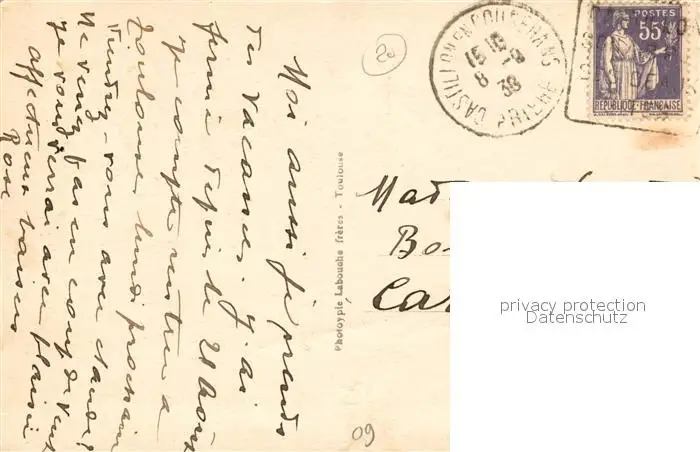 Moi aussi je prends
des vacances. J'ai
fermé depuis le 28 Août
je compte rentrer a
Toulouse lundi prochain
Viendrez-vous avec Claude?
Ne venez pas en coup de vent
je vous verrai avec plaisir
affectueux baisers
Rose
Phototypie Labouche frères - Toulouse
20
CASTILLON EN COUSERANS
15 15
8 - 9
38
ARIEGE
POSTES
55c
REPUBLIQUE FRANÇAISE
Mad
Bo
Ca
privacy protection
Datenschutz
09